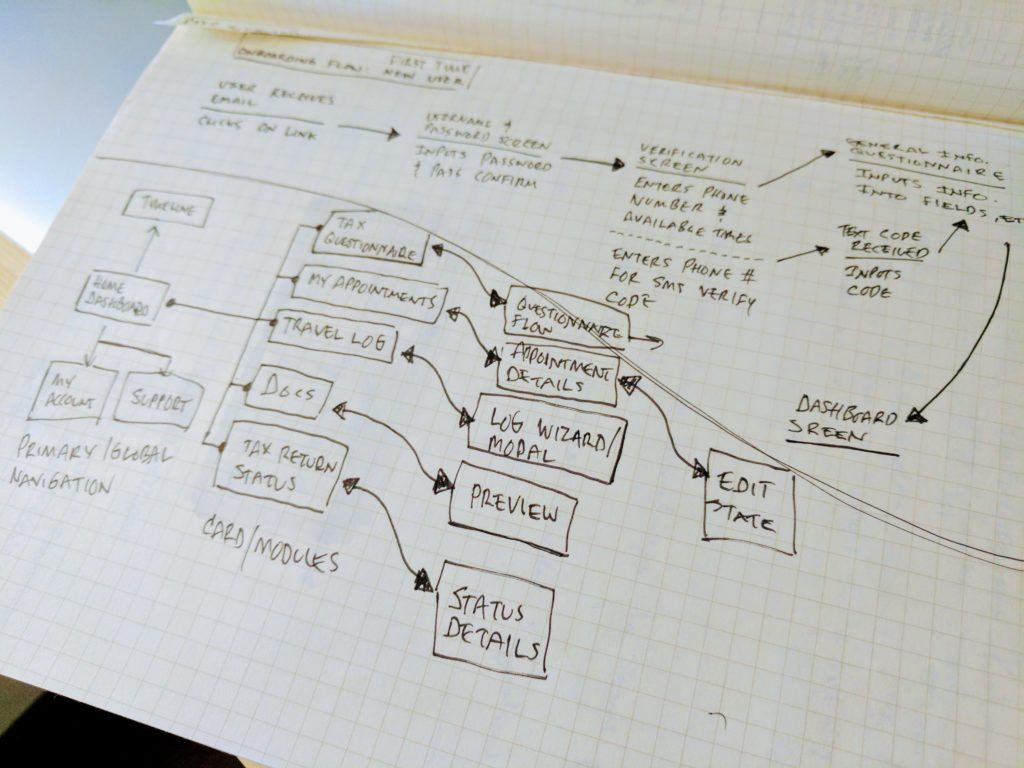 FIRST TIME/
ONBOARDING FLOW: NEW USER
USER RECEIVES
EMAIL
CLICKS ON LINK
USERNAME &
PASSWORD SCREEN
INPUTS PASSWORD
& PASS CONFIRM
VERIFICATION
SCREEN
ENTERS PHONE
NUMBER &
AVAILABLE TIMES
ENTERS PHONE #
FOR SMS VERIFY
CODE
GENERAL INFO.
QUESTIONNAIRE
INPUTS INFO.
INTO FIELDS, ETC
TEXT CODE
RECEIVED
INPUTS
CODE
DASHBOARD
SREEN
TIMELINE
HOME
DASHBOARD
MY
ACCOUNT
SUPPORT
PRIMARY/GLOBAL
NAVIGATION
TAX
QUESTIONNAIRE
MY APPOINTMENTS
TRAVEL LOG
DOCS
TAX RETURN
STATUS
CARD/MODULES
QUESTIONNAIRE
FLOW
APPOINTMENT
DETAILS
LOG WIZARD/
MODAL
PREVIEW
STATUS
DETAILS
EDIT
STATE